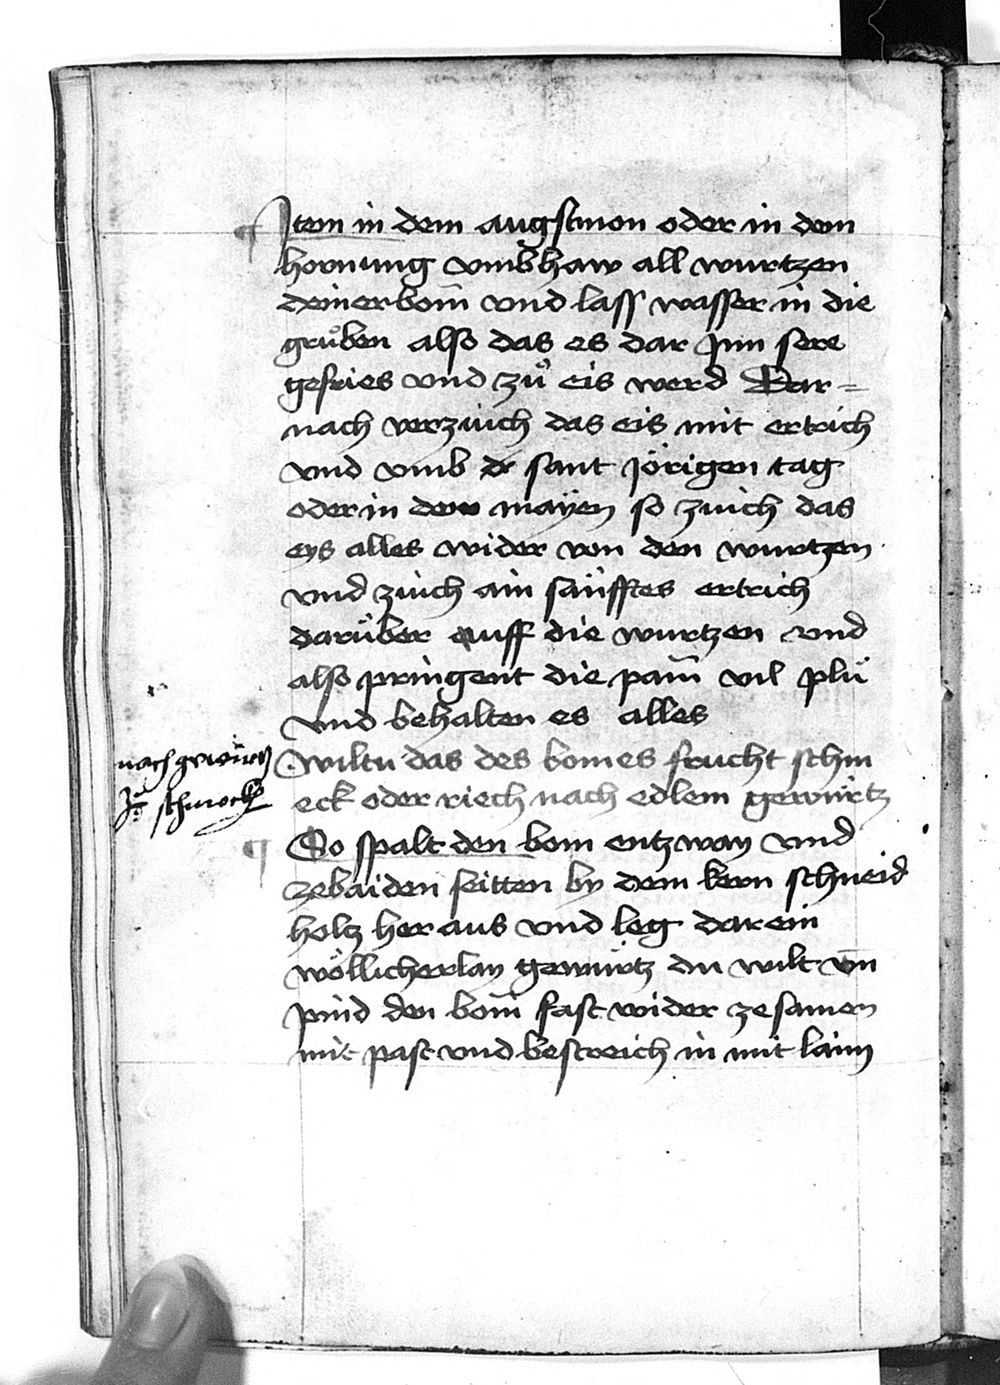 Item in dem augstmon oder in dem
hornung vmbhaw all wurtzen
deiner bom̄ vnd lass wasser in die
grůben also das es dar Jnn sere
gefries vnd zů eis werd Dar=
nach verzuich das eis mit ertrich
vnd vmb sant Jörigen tag
oder in dem mayen so zuich das
eys alles wider von den wurtzen
vnd zuich ain säufftes ertrich
darüber auff die wurtzen vnd
also pringent die pam̄ vil plü
vnd behalten es alles
nach gewürtz
zů schmecken
Wiltu das des bomes frucht schm
eck oder riech nach edlem gewürtz
So spalt den bom entzway vnd
zebaiden seitten by dem kern schneid
holtz her aus vnd leg darein
wöllicherlay gewürtz du wilt vn̄
pind den bom̄ fast wider zesamen
mit past vnd bestreich in mit laim